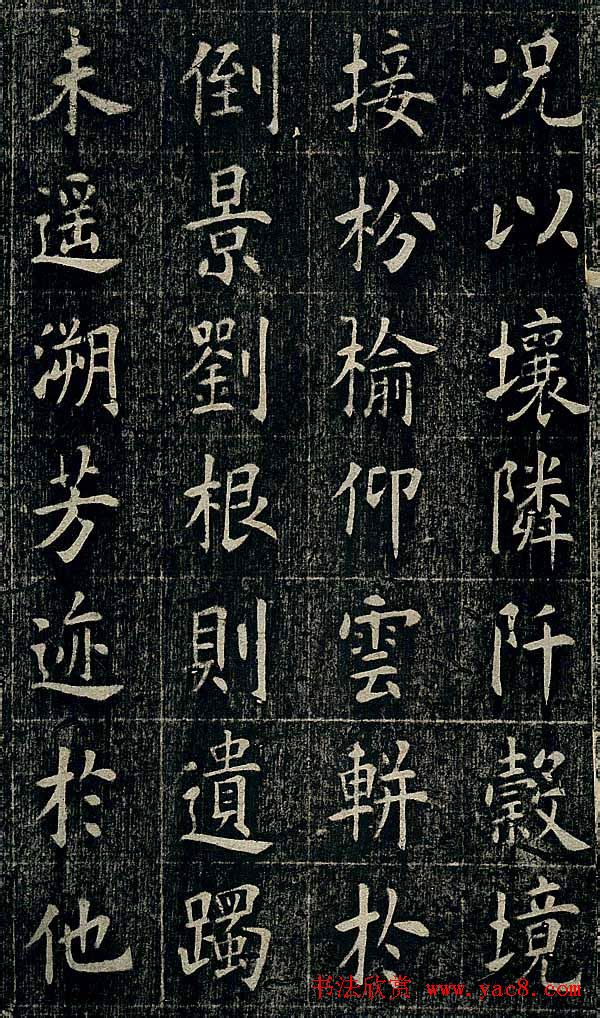 况以壤隣阡縠境
接枌榆仰雲軿於
倒景劉根則遺躅
未遥溯芳迹於他
书法欣赏 www.yac8.com